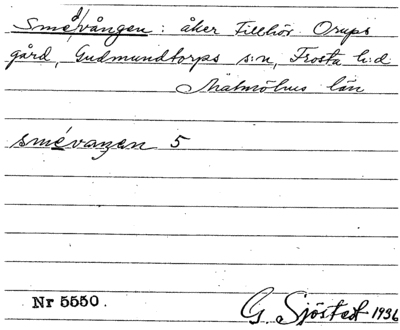 Smedvången: åker Tillhör Orups
gård, Gudmundtorps s:n, Frosta h:d
Malmöhus län
smévaŋen 5
Nr 5550.
G. Sjöstedt 1936